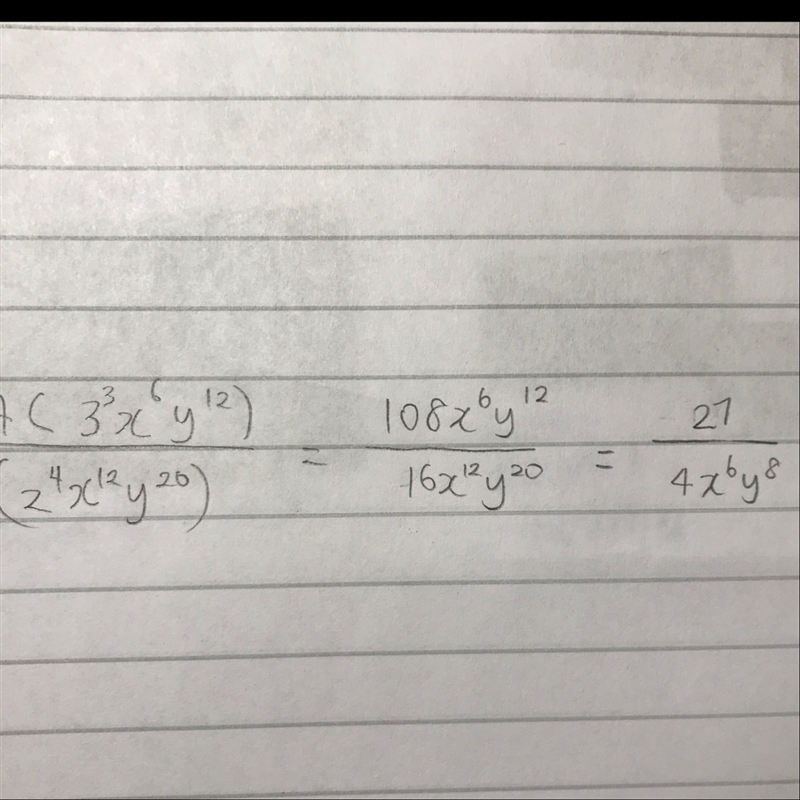 4(3³x⁶y¹²)/(2⁴x¹²y²⁰) = 108x⁶y¹²/16x¹²y²⁰ = 27/4x⁶y⁸